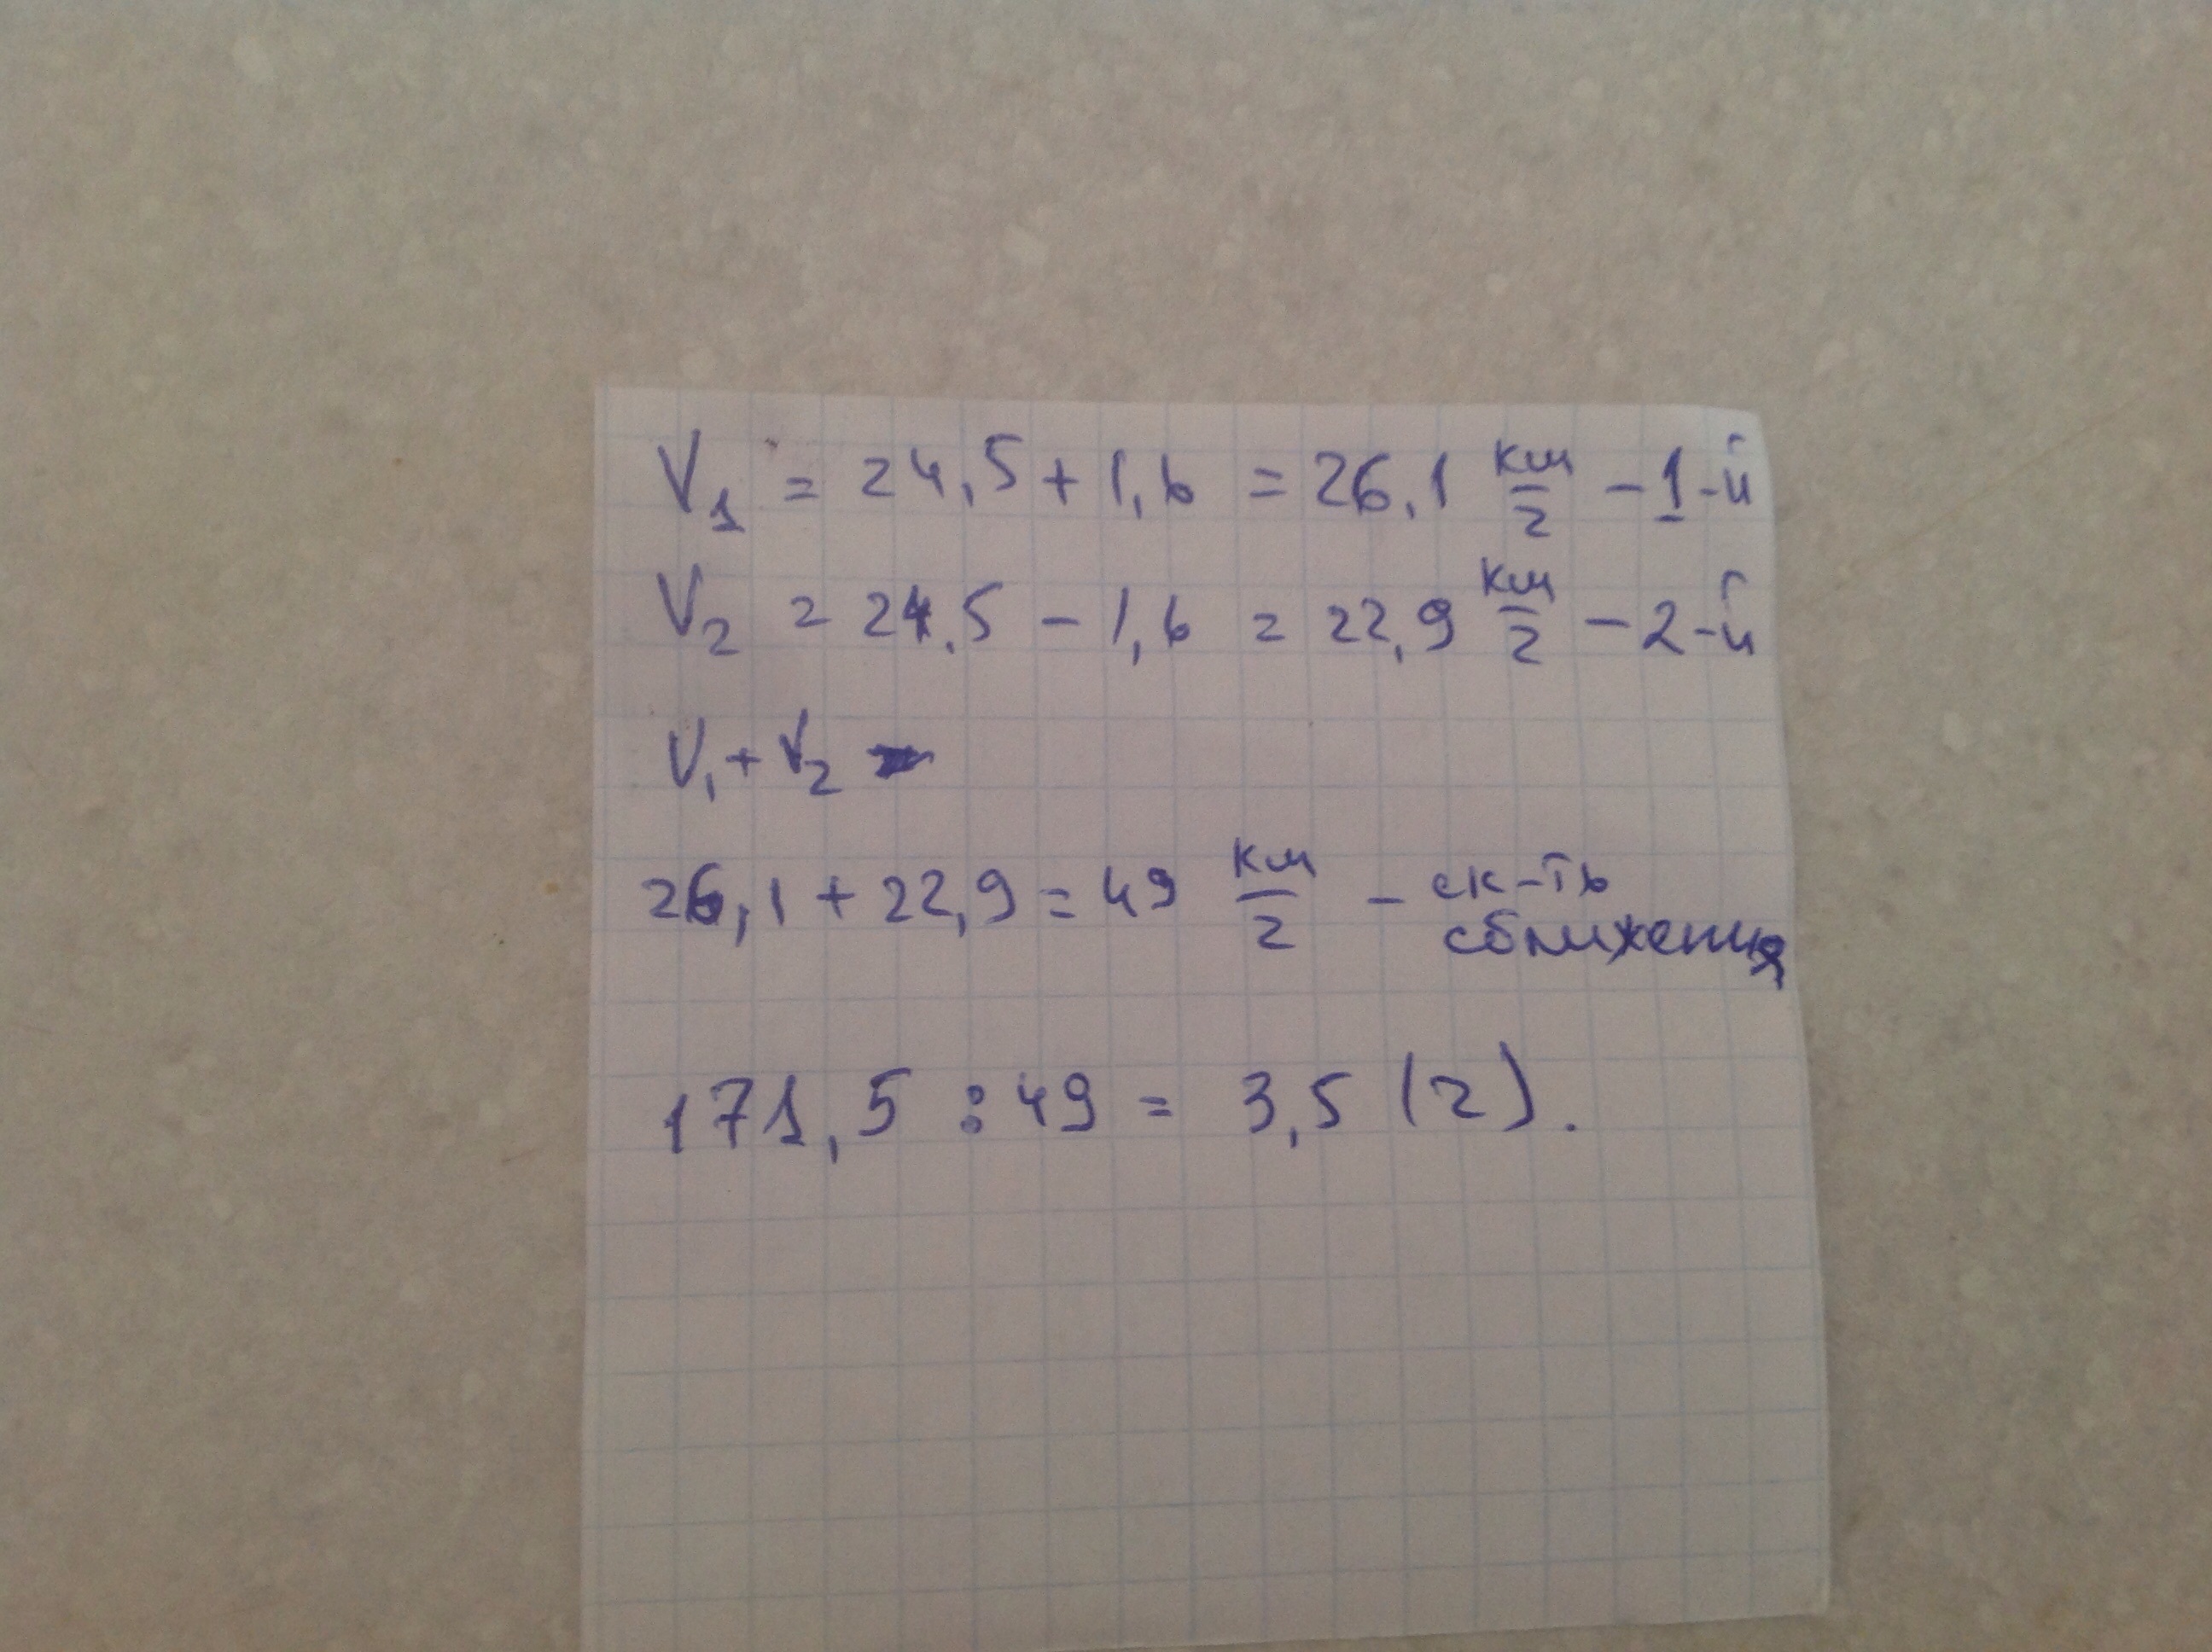 V₁ = 24,5 + 1,6 = 26,1 км/г - 1-й
V₂ = 24,5 - 1,6 = 22,9 км/г - 2-й
V₁ + V₂
26,1 + 22,9 = 49 км/г - ск-ть
сближения
171,5 : 49 = 3,5 (г).